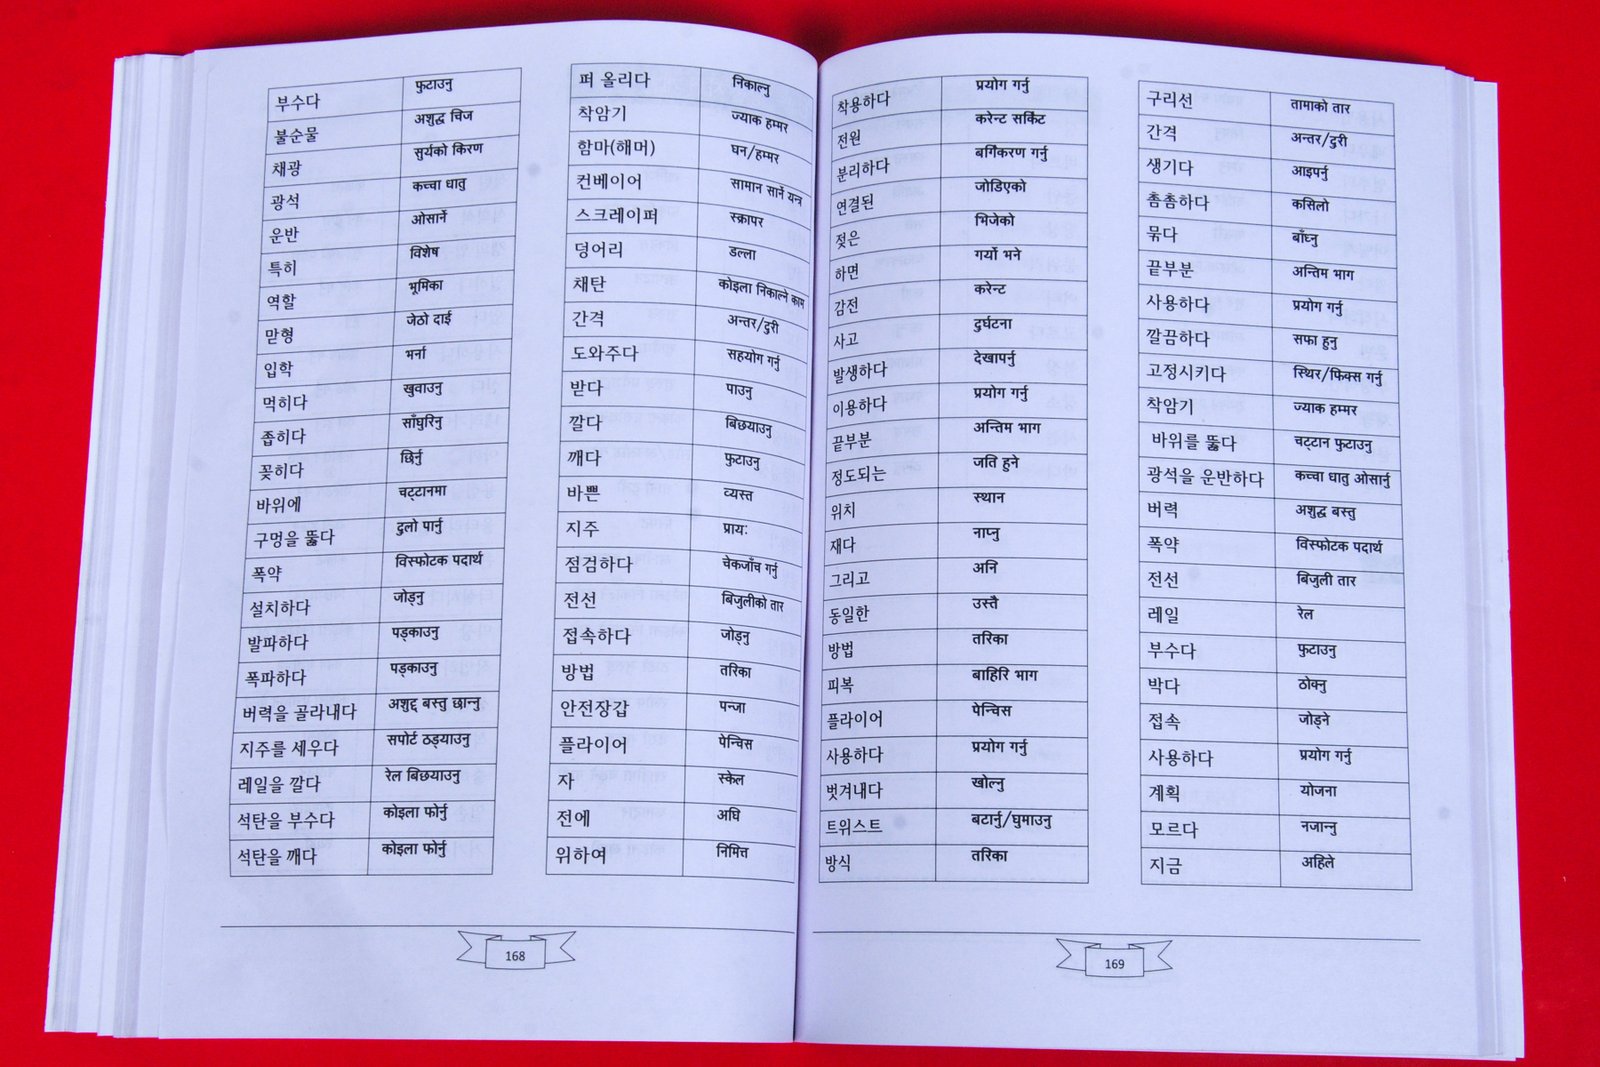 부수다 फुटाउनु
불순물 अशुद्ध चिज
채광 सुर्यको किरण
광석 कच्चा धातु
운반 ओसार्ने
특히 विशेष
역할 भूमिका
맏형 जेठो दाई
입학 भर्ना
먹히다 खुवाउनु
좁히다 साँघुरिनु
꽂히다 छिर्नु
바위에 चट्टानमा
구멍을 뚫다 दुलो पार्नु
폭약 विस्फोटक पदार्थ
설치하다 जोड्नु
발파하다 पड्काउनु
폭파하다 पड्काउनु
버력을 골라내다 अशुद्द बस्तु छान्नु
지주를 세우다 सपोर्ट ठड्याउनु
레일을 깔다 रेल बिछयाउनु
석탄을 부수다 कोइला फोर्नु
석탄을 깨다 कोइला फोर्नु
퍼 올리다 निकाल्नु
착암기 ज्याक हम्मर
함마(해머) घन/हम्मर
컨베이어 सामान सार्ने यन्त्र
스크레이퍼 स्क्रापर
덩어리 डल्ला
채탄 कोइला निकाल्ने काम
간격 अन्तर/दुरी
도와주다 सहयोग गर्नु
받다 पाउनु
깔다 बिछयाउनु
깨다 फुटाउनु
바쁜 व्यस्त
지주 प्रायः
점검하다 चेकजाँच गर्नु
전선 बिजुलीको तार
접속하다 जोड्नु
방법 तरिका
안전장갑 पन्जा
플라이어 पेन्चिस
자 स्केल
전에 अघि
위하여 निमित्त
168
착용하다 प्रयोग गर्नु
전원 करेन्ट सर्किट
분리하다 बर्गिकरण गर्नु
연결된 जोडिएको
젖은 भिजेको
하면 गर्यो भने
감전 करेन्ट
사고 दुर्घटना
발생하다 देखापर्नु
이용하다 प्रयोग गर्नु
끝부분 अन्तिम भाग
정도되는 जति हुने
위치 स्थान
재다 नाप्नु
그리고 अनि
동일한 उस्तै
방법 तरिका
피복 बाहिरि भाग
플라이어 पेन्चिस
사용하다 प्रयोग गर्नु
벗겨내다 खोल्नु
트위스트 बटार्नु/घुमाउनु
방식 तरिका
구리선 तामाको तार
간격 अन्तर/दुरी
생기다 आइपर्नु
촘촘하다 कसिलो
묶다 बाँध्नु
끝부분 अन्तिम भाग
사용하다 प्रयोग गर्नु
깔끔하다 सफा हुनु
고정시키다 स्थिर/फिक्स गर्नु
착암기 ज्याक हम्मर
바위를 뚫다 चट्टान फुटाउनु
광석을 운반하다 कच्चा धातु ओसार्नु
버력 अशुद्ध बस्तु
폭약 विस्फोटक पदार्थ
전선 बिजुली तार
레일 रेल
부수다 फुटाउनु
박다 ठोक्नु
접속 जोड्ने
사용하다 प्रयोग गर्नु
계획 योजना
모르다 नजान्नु
지금 अहिले
169